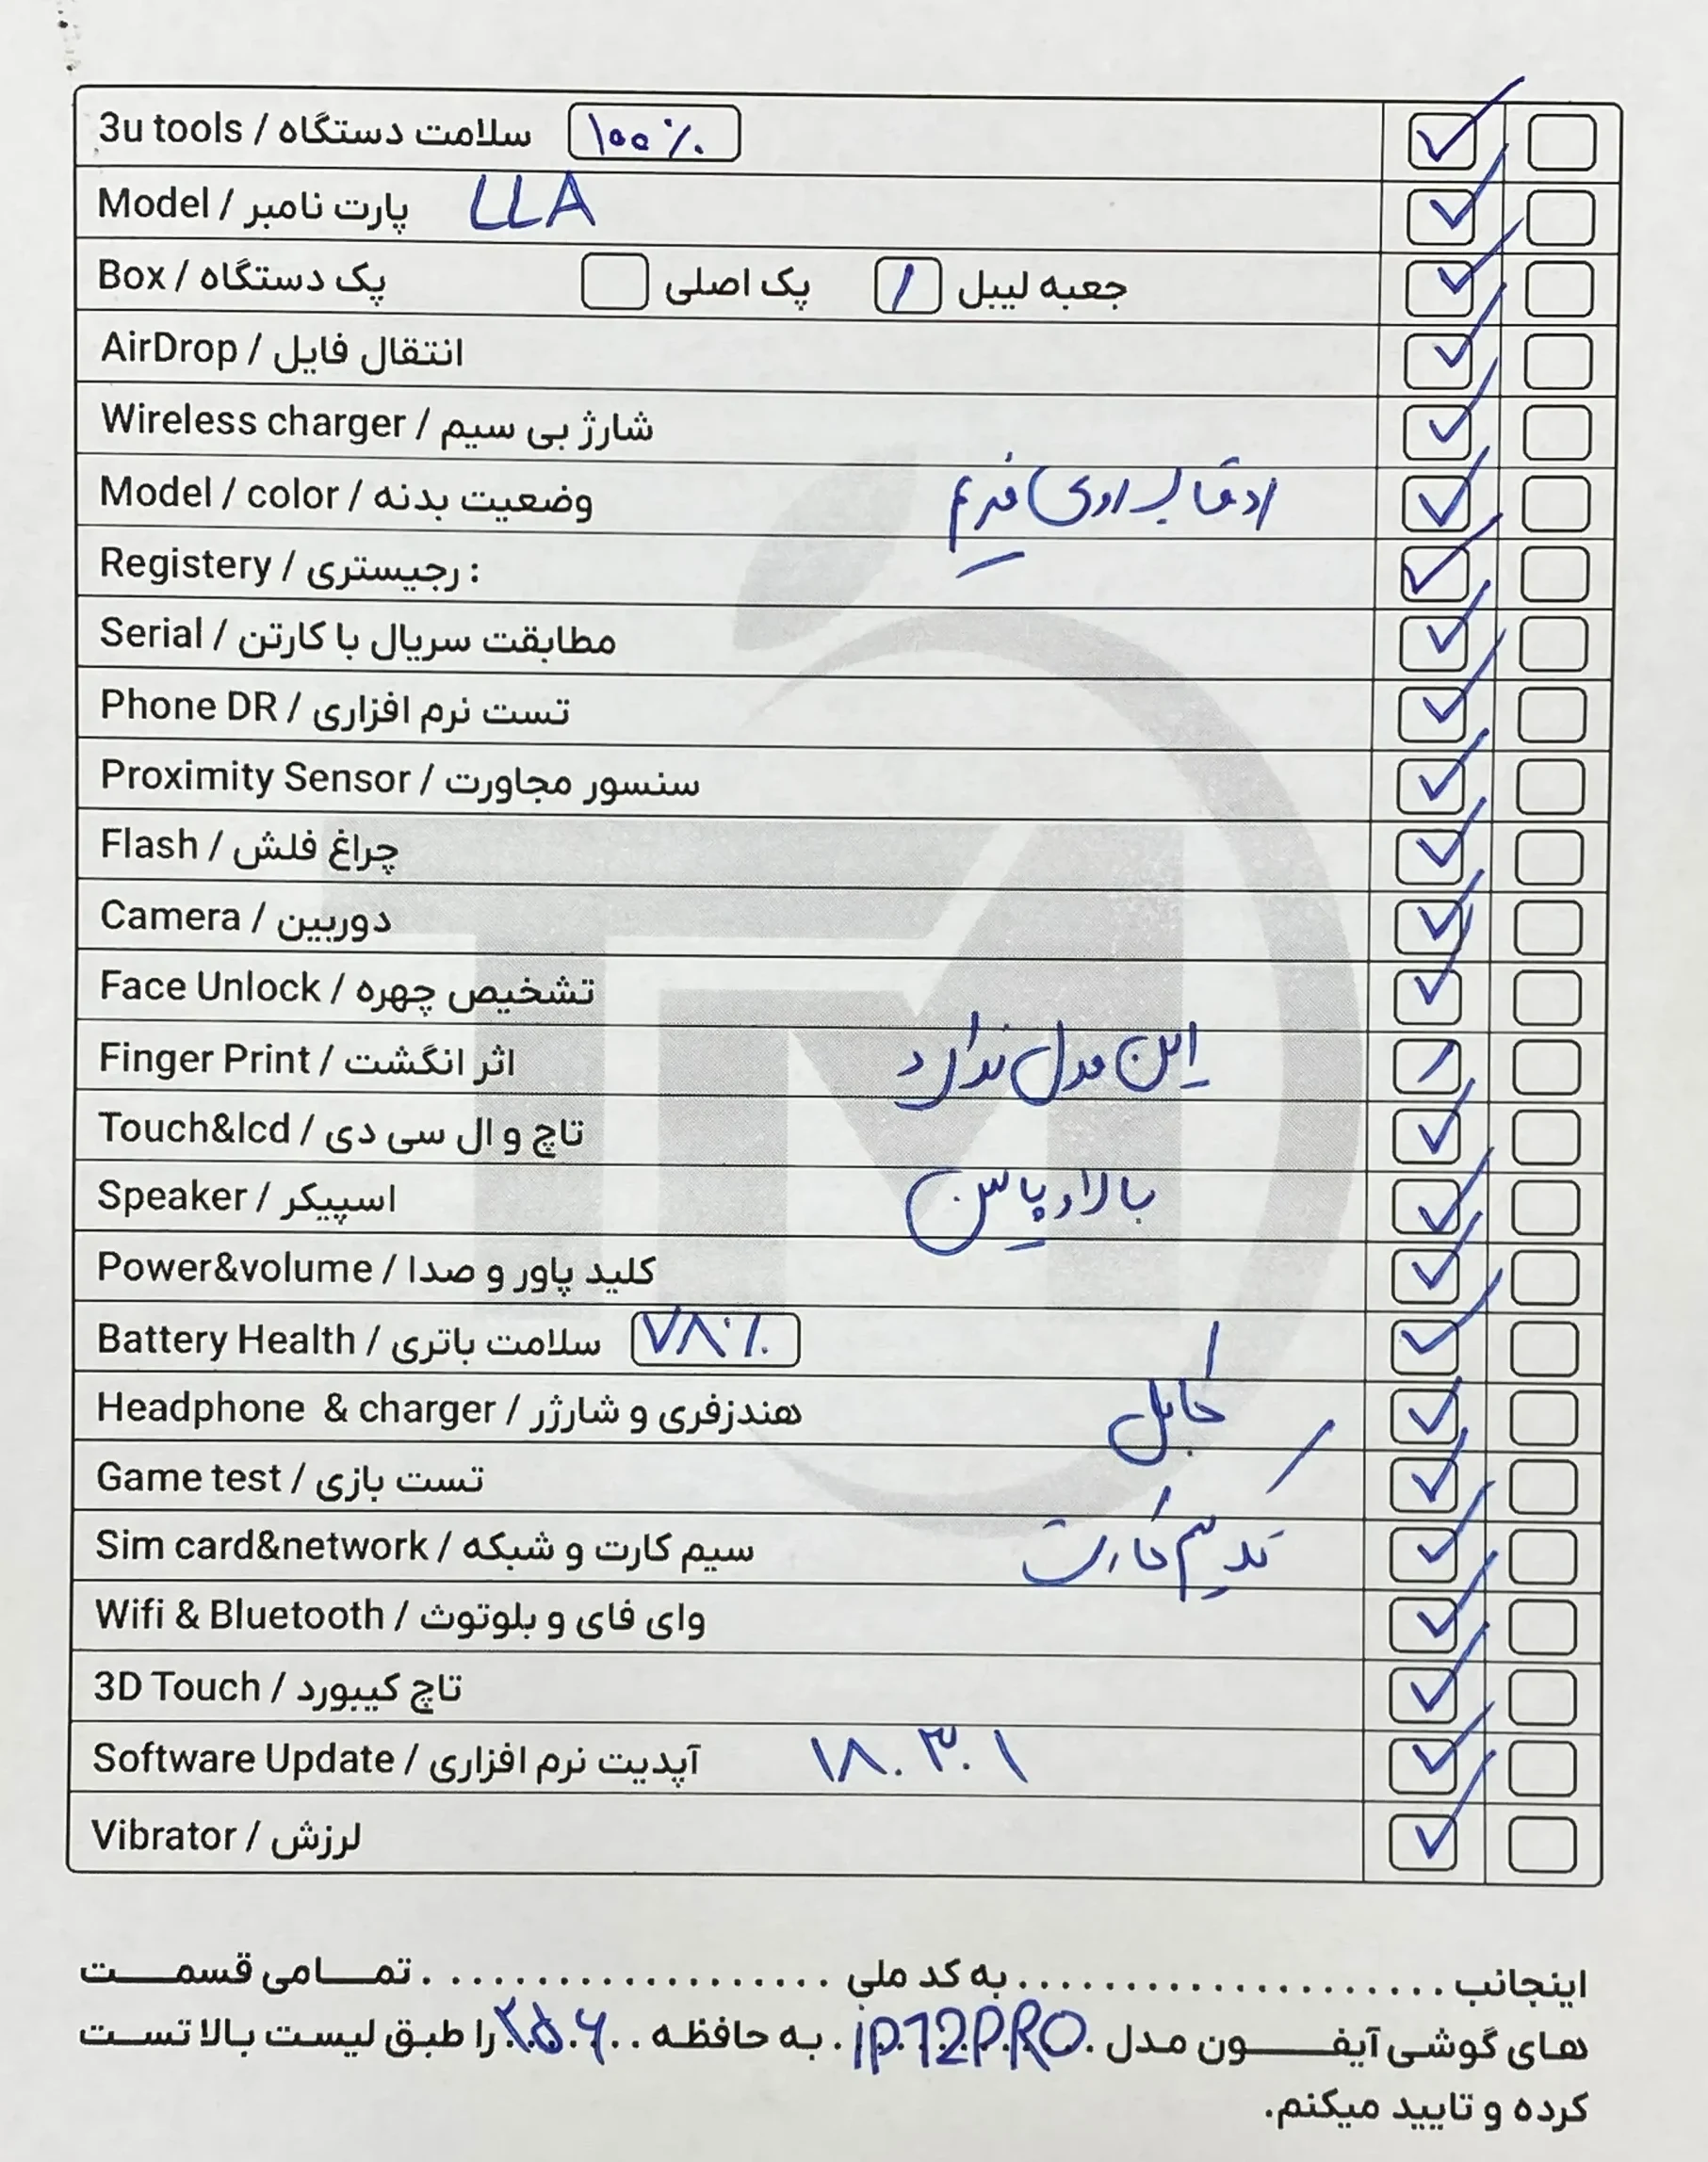 3u tools / سلامت دستگاه ۱۰۰٪
Model / پارت نامبر LLA
Box / پک دستگاه پک اصلی جعبه لیبل
AirDrop / انتقال فایل
Wireless charger / شارژ بی سیم
Model / color / وضعیت بدنه روی فریم
Registery / رجیستری :
Serial / مطابقت سریال با کارتن
Phone DR / تست نرم افزاری
Proximity Sensor / سنسور مجاورت
Flash / چراغ فلش
Camera / دوربین
Face Unlock / تشخیص چهره
Finger Print / اثر انگشت این مدل ندارد
Touch&lcd / تاچ و ال سی دی
Speaker / اسپیکر بالا و پایین
Power&volume / کلید پاور و صدا
Battery Health / سلامت باتری ۷۸٪
Headphone & charger / هندزفری و شارژر کابل
Game test / تست بازی
Sim card&network / سیم کارت و شبکه تک سیم کارت
Wifi & Bluetooth / وای فای و بلوتوث
3D Touch / تاچ کیبورد
Software Update / آپدیت نرم افزاری ۱۸.۳.۱
Vibrator / لرزش
TM
اینجانب .................... به کد ملی .................... تمامی قسمت
های گوشی آیفون مدل ip12PRO به حافظه ۲۵۶ را طبق لیست بالا تست
کرده و تایید میکنم.